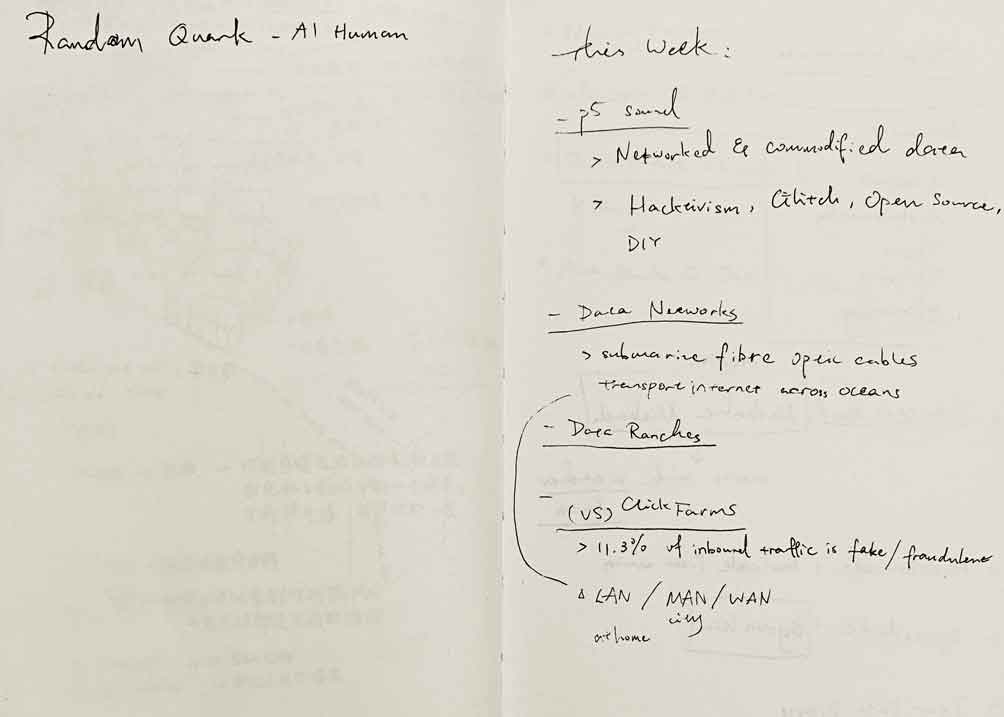 Random Quark - AI Human
this week:
- p5 sound
> Networked & commodified data
> Hacktivism, Glitch, Open Source,
DIY
- Data Networks
> submarine fibre optic cables
transport internet across oceans
- Data Ranches
- (VS) Click Farms
> 11.3% of inbound traffic is fake/fraudulent
△ LAN / MAN / WAN
city
at home